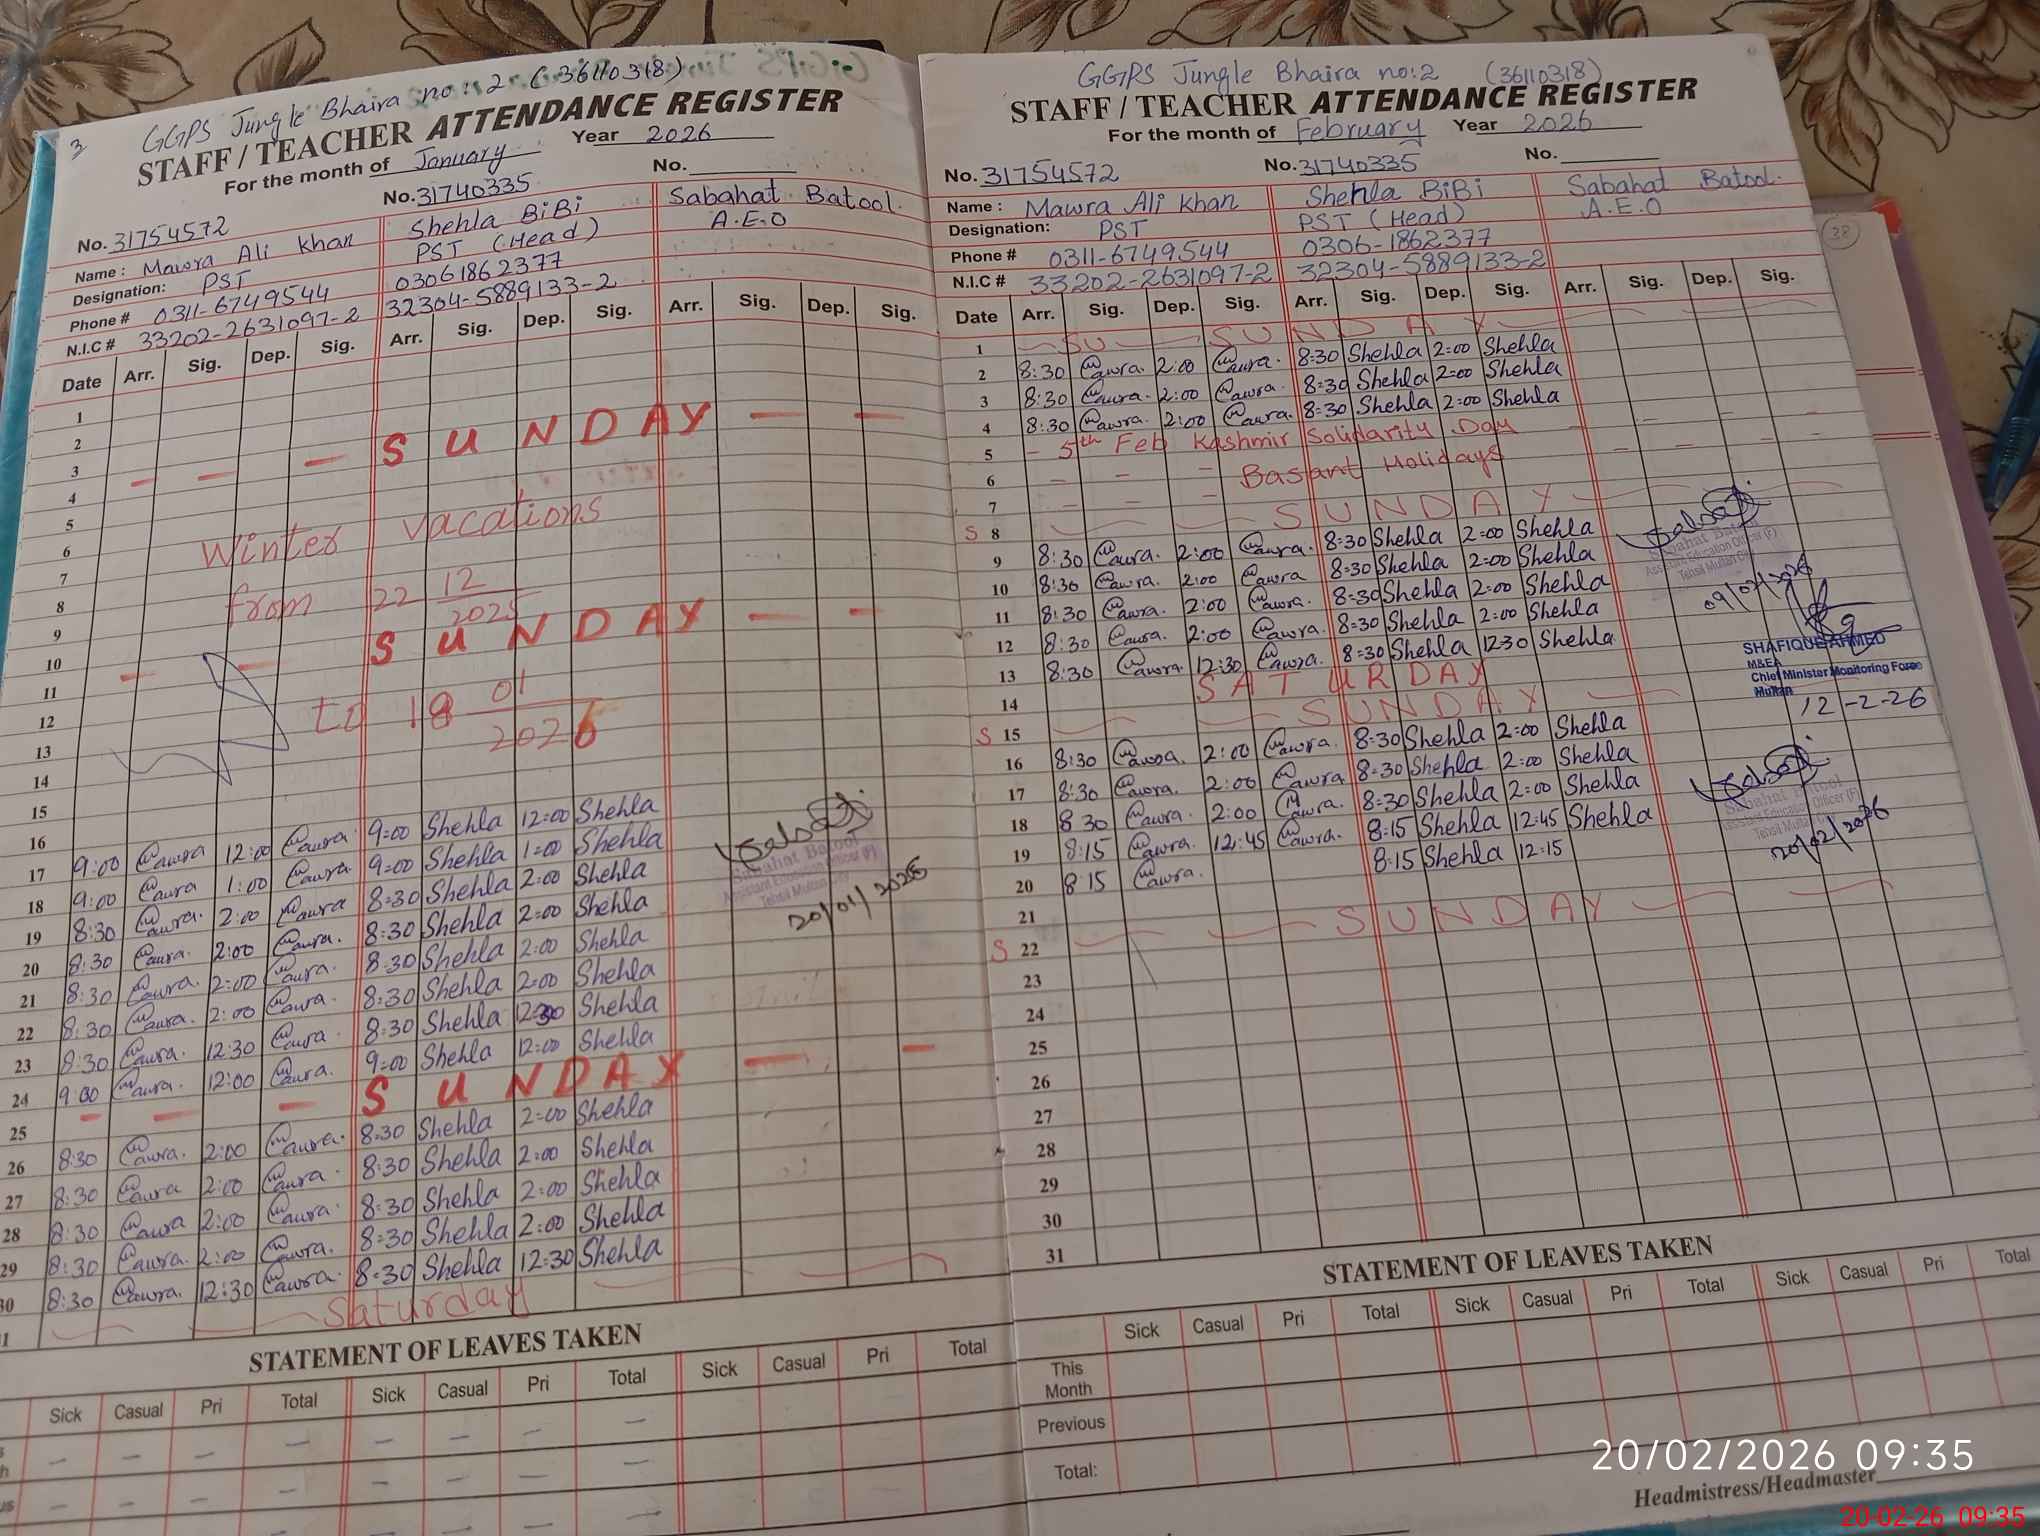 3
GGPS Jungle Bhaira no: 2 (36110318)
STAFF / TEACHER ATTENDANCE REGISTER
For the month of January Year 2026
No. 31754572 No. 31740335 No.
Name: Mawra Ali Khan Shehla BiBi Sabahat Batool.
Designation: PST PST (Head) A.E.O
Phone # 0311-6749544 03061862377
N.I.C # 33202-2631097-2 32304-5889133-2
Date Arr. Sig. Dep. Sig. Arr. Sig. Dep. Sig. Arr. Sig. Dep. Sig.
1
2
3
4 SUNDAY
5
6 Winter vacations
7
8 from 22 12
9 2025
10
11 SUNDAY
12
13 to 18 01
14 2026
15
16 9:00 Mawra 12:00 Mawra. 9=00 Shehla 12=00 Shehla
17 9:00 Mawra 1:00 Mawra. 9=00 Shehla 1=00 Shehla
18 8:30 Mawra. 2:00 Mawra 8=30 Shehla 2=00 Shehla
19 8:30 Mawra. 2:00 Mawra. 8=30 Shehla 2=00 Shehla
20 8:30 Mawra. 2:00 Mawra. 8=30 Shehla 2=00 Shehla
21 8:30 Mawra. 2:00 Mawra. 8=30 Shehla 2=00 Shehla
22 8:30 Mawra. 12:30 Mawra. 8=30 Shehla 12=30 Shehla
23 9:00 Mawra. 12:00 Mawra. 9=00 Shehla 12=00 Shehla
24
25 SUNDAY
26 8:30 Mawra. 2:00 Mawra. 8=30 Shehla 2=00 Shehla
27 8:30 Mawra 2:00 Mawra. 8=30 Shehla 2=00 Shehla
28 8:30 Mawra 2:00 Mawra. 8=30 Shehla 2=00 Shehla
29 8:30 Mawra. 2:00 Mawra. 8=30 Shehla 2=00 Shehla
30 8:30 Mawra. 12:30 Mawra. 8=30 Shehla 12=30 Shehla
1 Saturday
Sabahat Batool
Assistant Education Officer (F)
Tehsil Multan City
20/01/2026
STATEMENT OF LEAVES TAKEN
Sick Casual Pri Total Sick Casual Pri Total Sick Casual Pri Total
GGPS Jungle Bhaira no:2 (36110318)
STAFF / TEACHER ATTENDANCE REGISTER
For the month of February Year 2026
No. 31754572 No. 31740335 No.
Name: Mawra Ali Khan Shehla BiBi Sabahat Batool.
Designation: PST PST (Head) A.E.O
Phone # 0311-6749544 0306-1862377
N.I.C # 33202-2631097-2 32304-5889133-2
Date Arr. Sig. Dep. Sig. Arr. Sig. Dep. Sig. Arr. Sig. Dep. Sig.
1 SU SUNDAY
2 8:30 Mawra. 2:00 Mawra. 8=30 Shehla 2=00 Shehla
3 8:30 Mawra. 2:00 Mawra. 8=30 Shehla 2=00 Shehla
4 8:30 Mawra. 2:00 Mawra. 8=30 Shehla 2=00 Shehla
5 - 5th Feb Kashmir Solidarity Day
6 Basant Holidays
7
S 8 SUNDAY
9 8:30 Mawra. 2:00 Mawra. 8=30 Shehla 2=00 Shehla
10 8:30 Mawra. 2:00 Mawra 8=30 Shehla 2=00 Shehla
11 8:30 Mawra. 2:00 Mawra. 8=30 Shehla 2=00 Shehla
12 8:30 Mawra. 2:00 Mawra. 8=30 Shehla 2=00 Shehla
13 8:30 Mawra. 12:30 Mawra. 8=30 Shehla 12=30 Shehla
14 SATURDAY
S 15 SUNDAY
16 8:30 Mawra. 2:00 Mawra. 8=30 Shehla 2=00 Shehla
17 8:30 Mawra. 2:00 Mawra 8=30 Shehla 2=00 Shehla
18 8 30 Mawra. 2:00 Mawra. 8=30 Shehla 2=00 Shehla
19 8:15 Mawra. 12:45 Mawra. 8=15 Shehla 12=45 Shehla
20 8 15 Mawra. 8=15 Shehla 12=15
21
S 22 SUNDAY
23
24
25
26
27
28
29
30
31
Sabahat Batool
Assistant Education Officer (F)
Tehsil Multan City
SHAFIQUE AHMED
M&EA
Chief Minister Monitoring Force
Multan
12-2-26
Sabahat Batool
Assistant Education Officer (F)
Tehsil Multan
20/02/2026
STATEMENT OF LEAVES TAKEN
Sick Casual Pri Total Sick Casual Pri Total Sick Casual Pri Total
This Month
Previous
Total:
Headmistress/Headmaster
38
20/02/2026 09:35
20-02-26 09:35